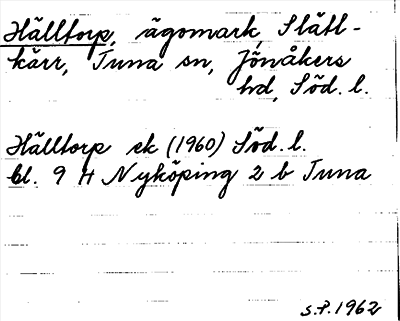 Hälltorp, ägomark, Slätt-
kärr, Tuna sn, Jönåkers
hd, Söd. l.
Hälltorp ek (1960) Söd. l.
Bl. 9 H Nyköping 2 b Tuna
S.P. 1962